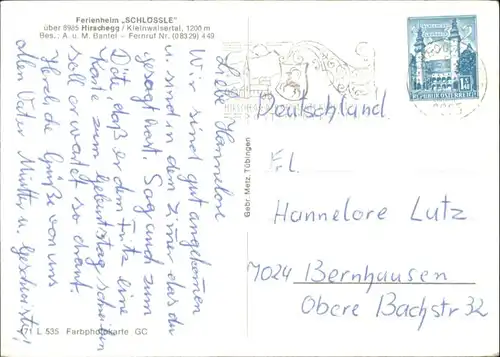 Ferienheim „SCHLÖSSLE"
über 8985 Hirschegg / Kleinwalsertal, 1200 m
Bes.: A. u. M. Bantel - Fernruf Nr. (08329) 449
Liebe Hannelore
Wir sind gut angekommen
u. sind in dem Zimer das du
gesagt hast. Sag and zum
Dete, daß er dem Fritz eine
Karte zum Geburtstag schreiben
soll er wartet so drauf.
Herzliche Grüße von uns
allen Vater Mutter u. Geschwister
171 L 535 Farbphotokarte GC
Gebr. Metz, Tübingen
REPUBLIK ÖSTERREICH
Deutschland
Frl.
Hannelore Lutz
7024 Bernhausen
Obere Bachstr 32